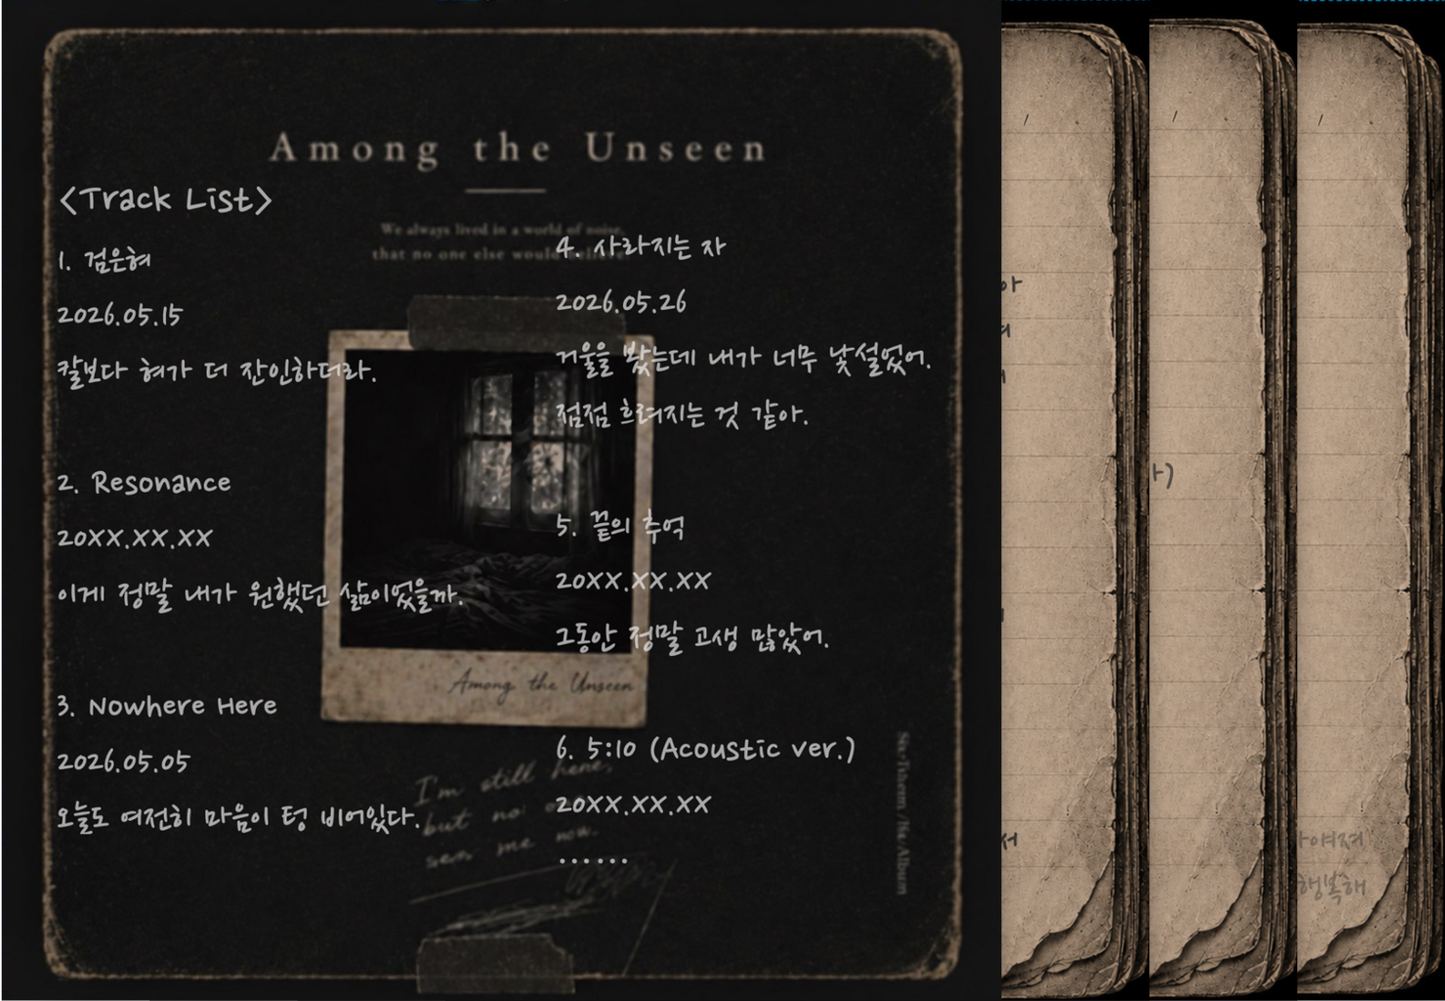 Among the Unseen
<Track List>
We always lived in a world of noise,
that no one else would
1. 검은혀
2026.05.15
칼보다 혀가 더 잔인하더라.
2. Resonance
20XX.XX.XX
이게 정말 내가 원했던 삶이었을까.
3. Nowhere Here
2026.05.05
오늘도 여전히 마음이 텅 비어있다.
4. 사라지는 자
2026.05.26
거울을 봤는데 내가 너무 낯설었어.
점점 흐려지는 것 같아.
5. 끝의 추억
20XX.XX.XX
그동안 정말 고생 많았어.
6. 5:10 (Acoustic ver.)
20XX.XX.XX
......
Among the Unseen
I'm still here,
but no
seen me now.
아
서
여져
행복해